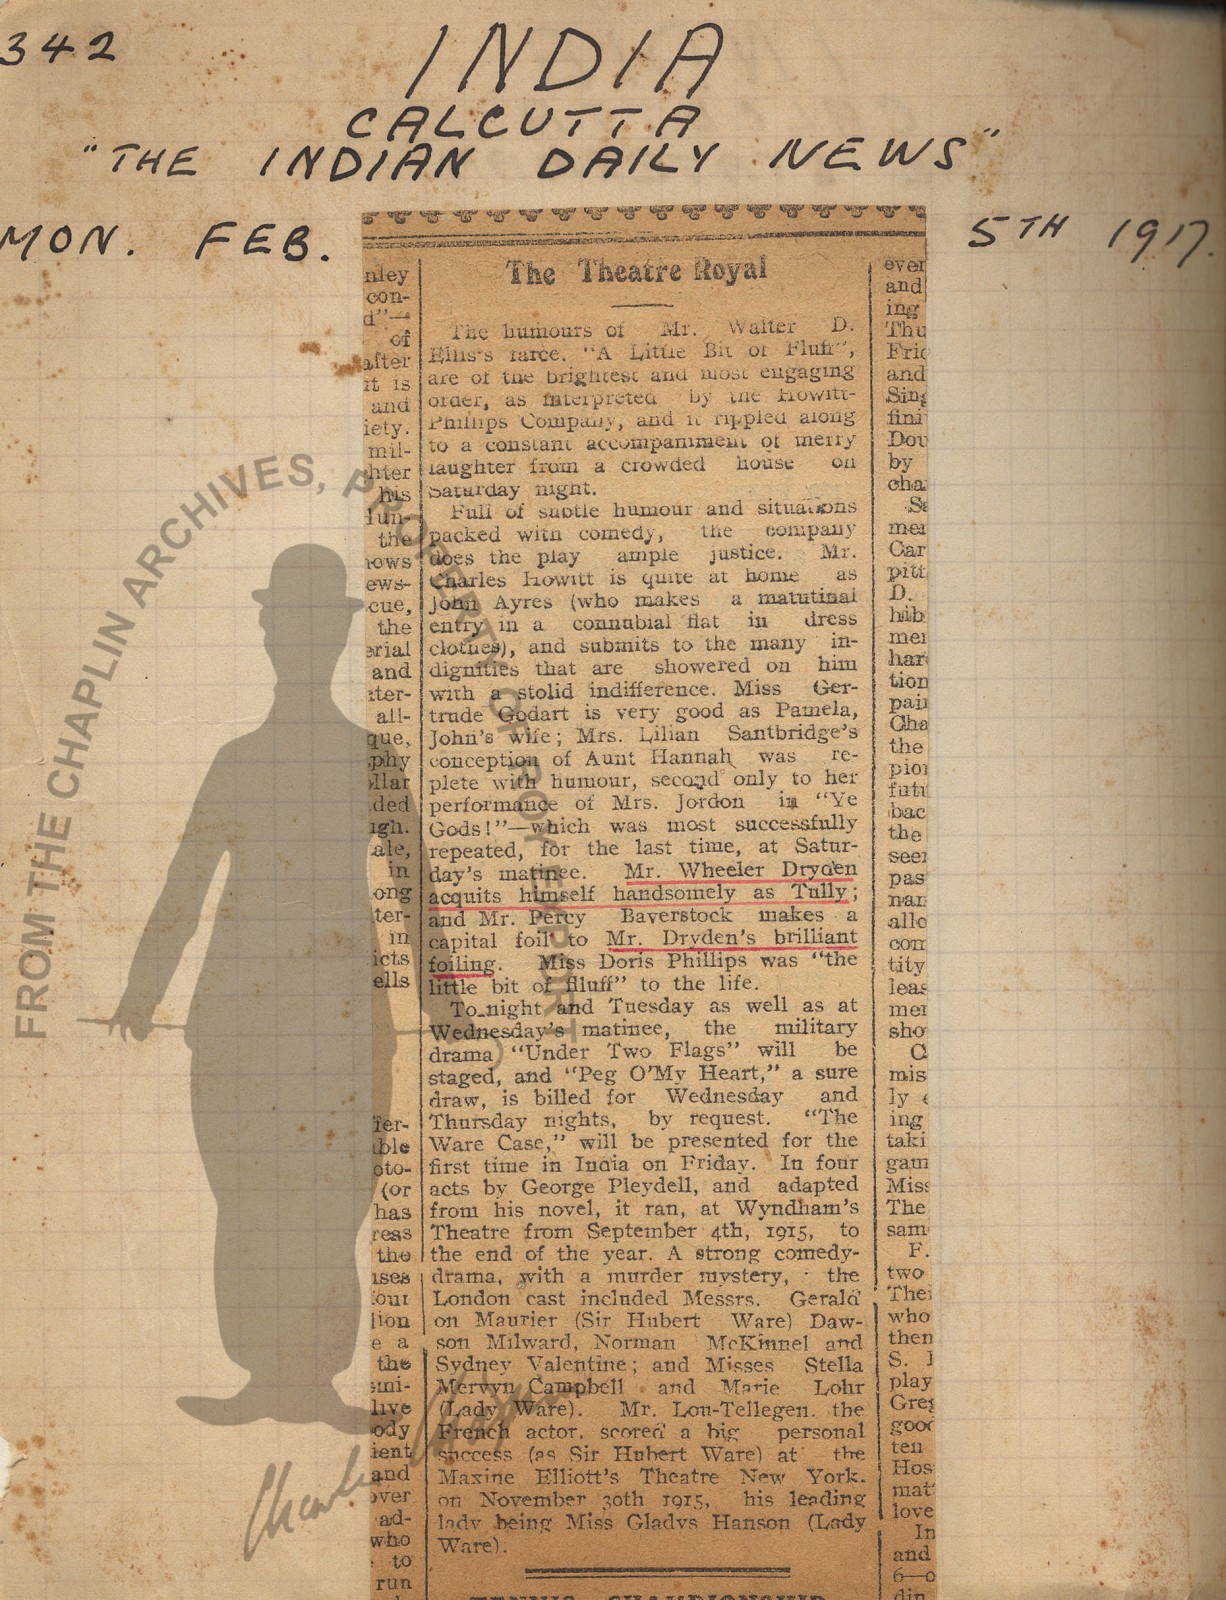 342
INDIA
CALCUTTA
"THE INDIAN DAILY NEWS"
MON. FEB. 5TH 1917.
The Theatre Royal
The humours of Mr. Walter D.
Ellis's farce. "A Little Bit of Fluff",
are of the brightest and most engaging
order, as interpreted by the Howitt-
Phillips Company, and it rippled along
to a constant accompaniment of merry
laughter from a crowded house on
Saturday night.
Full of subtle humour and situations
packed with comedy, the company
does the play ample justice. Mr.
Charles Howitt is quite at home as
John Ayres (who makes a matutinal
entry in a connubial flat in dress
clothes), and submits to the many in-
dignities that are showered on him
with a stolid indifference. Miss Ger-
trude Godart is very good as Pamela,
John's wife; Mrs. Lilian Santbridge's
conception of Aunt Hannah was re-
plete with humour, second only to her
performance of Mrs. Jordon in "Ye
Gods!"—which was most successfully
repeated, for the last time, at Satur-
day's matinee. Mr. Wheeler Dryden
acquits himself handsomely as Tully;
and Mr. Percy Baverstock makes a
capital foil to Mr. Dryden's brilliant
foiling. Miss Doris Phillips was "the
little bit of fluff" to the life.
To-night and Tuesday as well as at
Wednesday's matinee, the military
drama "Under Two Flags" will be
staged, and "Peg O'My Heart," a sure
draw, is billed for Wednesday and
Thursday nights, by request. "The
Ware Case," will be presented for the
first time in India on Friday. In four
acts by George Pleydell, and adapted
from his novel, it ran, at Wyndham's
Theatre from September 4th, 1915, to
the end of the year. A strong comedy-
drama, with a murder mystery, the
London cast included Messrs. Gerald
on Maurier (Sir Hubert Ware) Daw-
son Milward, Norman McKinnel and
Sydney Valentine; and Misses Stella
Mervyn Campbell and Marie Lohr
(Lady Ware). Mr. Lou-Tellegen. the
French actor. scored a big personal
success (as Sir Hubert Ware) at the
Maxine Elliott's Theatre New York.
on November 30th 1915, his leading
lady being Miss Gladys Hanson (Lady
Ware).
TENNIS CHAMPIONSHIP
FROM THE CHAPLIN ARCHIVES, PROPERTY OF ROY EXPORT
Charlie Chaplin